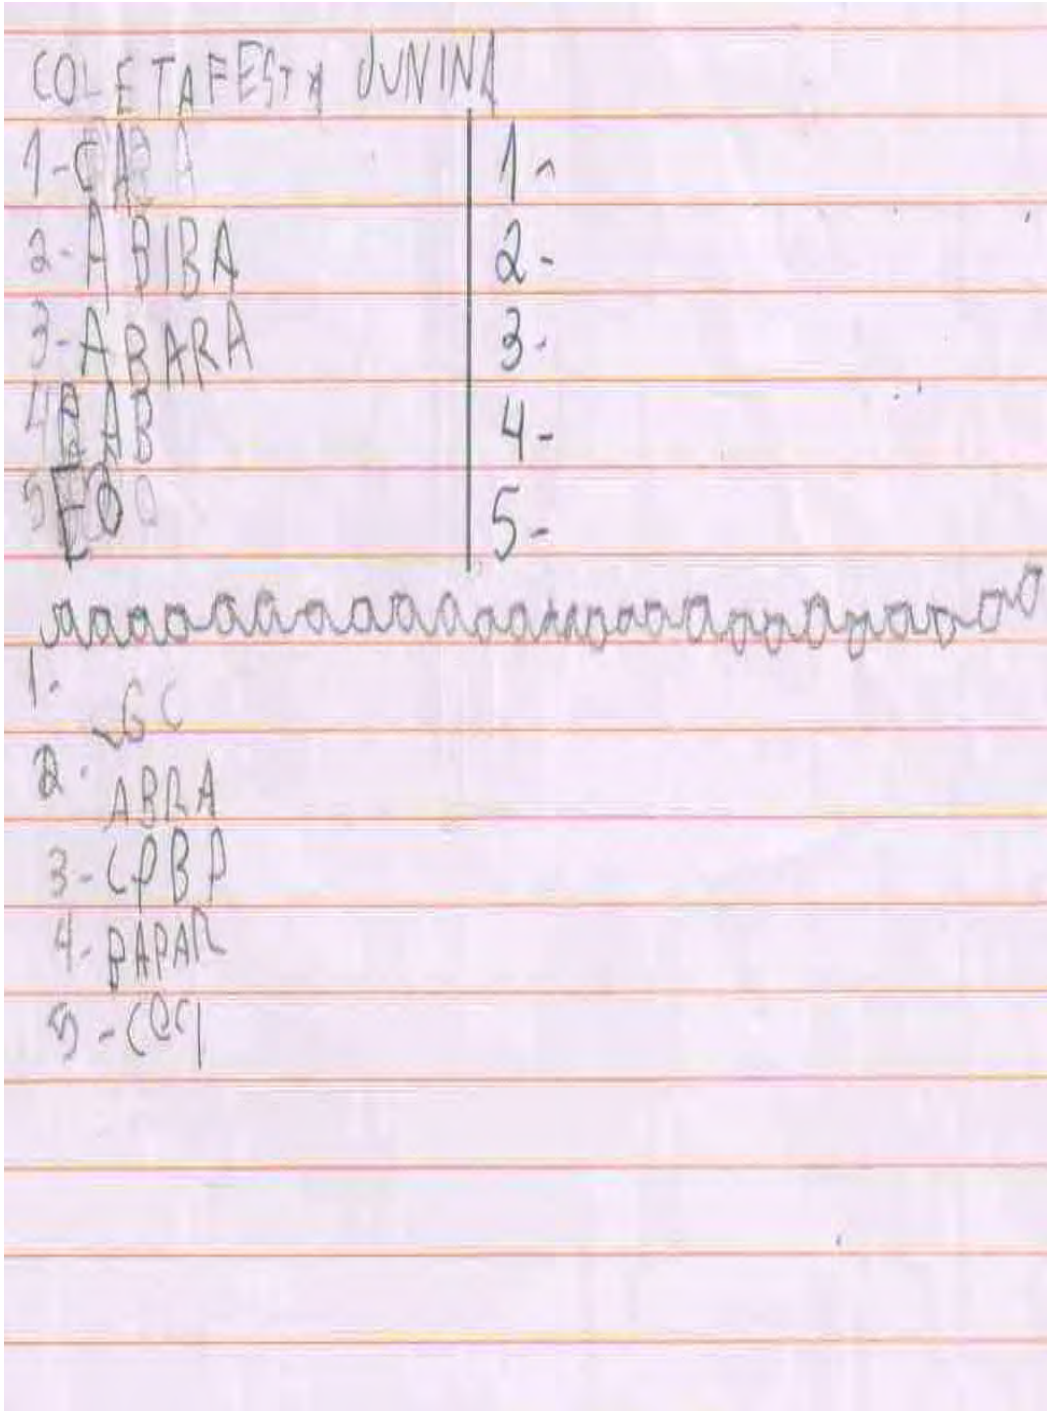 COLETA FESTA JUNINA
1-CABA
2-ABIBA
3-ABARA
4BAB
5EOO
1-
2-
3-
4-
5-
1-
2- ABRA
3-CPBP
4-PAPAR
5-